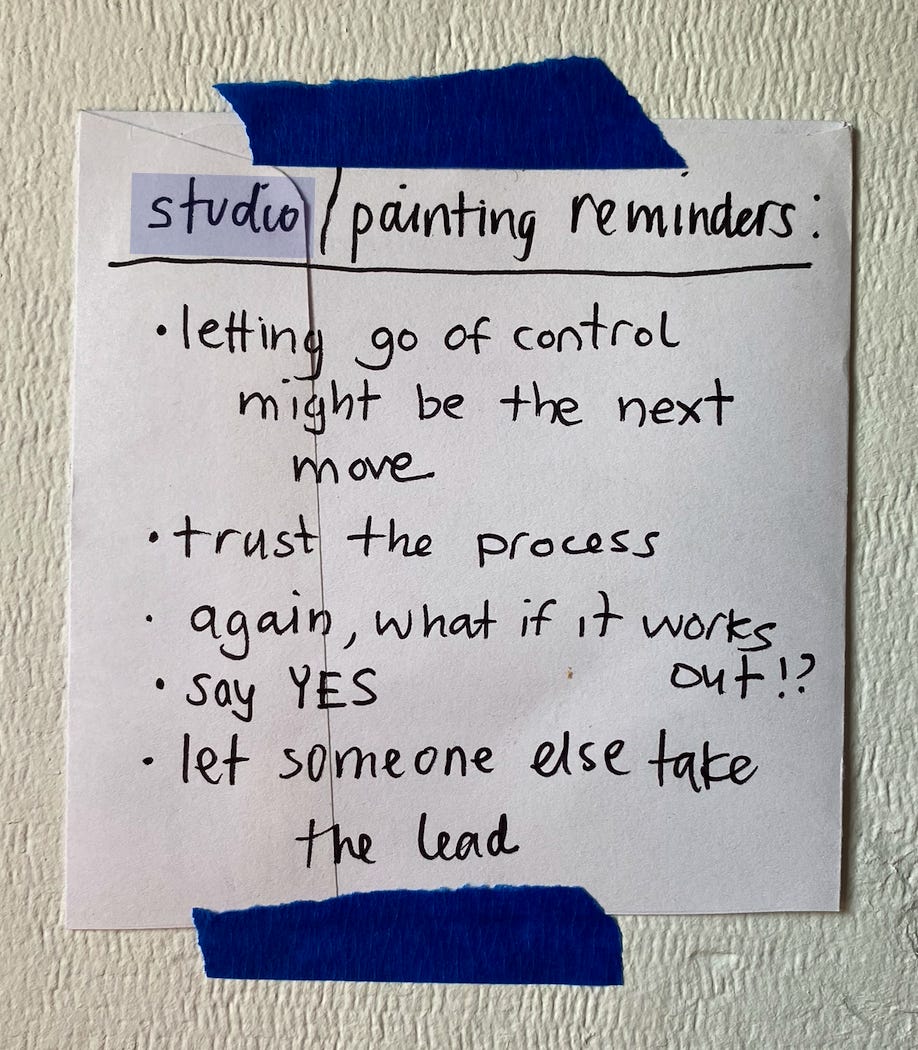 studio/painting reminders:
• letting go of control
might be the next
move
• trust the process
• again, what if it works
out!?
• say YES
• let someone else take
the lead